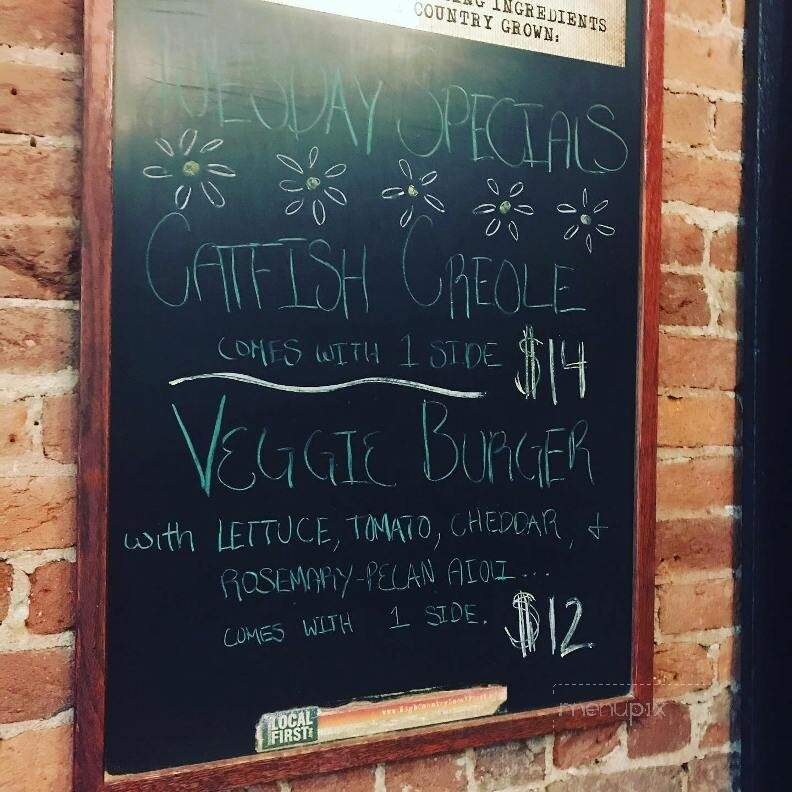 INGREDIENTS
COUNTRY GROWN:
TUESDAY SPECIALS
CATFISH CREOLE
COMES WITH 1 SIDE $14
VEGGIE BURGER
with LETTUCE, TOMATO, CHEDDAR, +
ROSEMARY-PECAN AIOLI...
COMES WITH 1 SIDE. $12
LOCAL
FIRST!
menupix